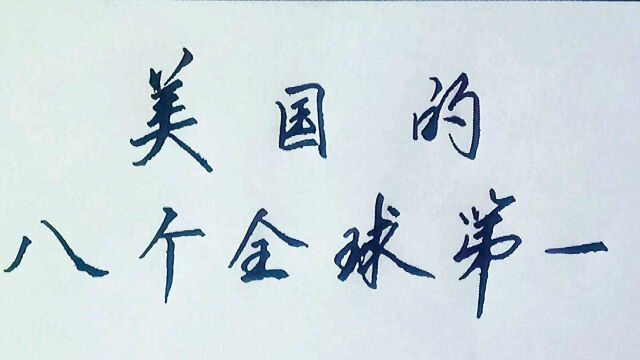 美国的
八个全球第一